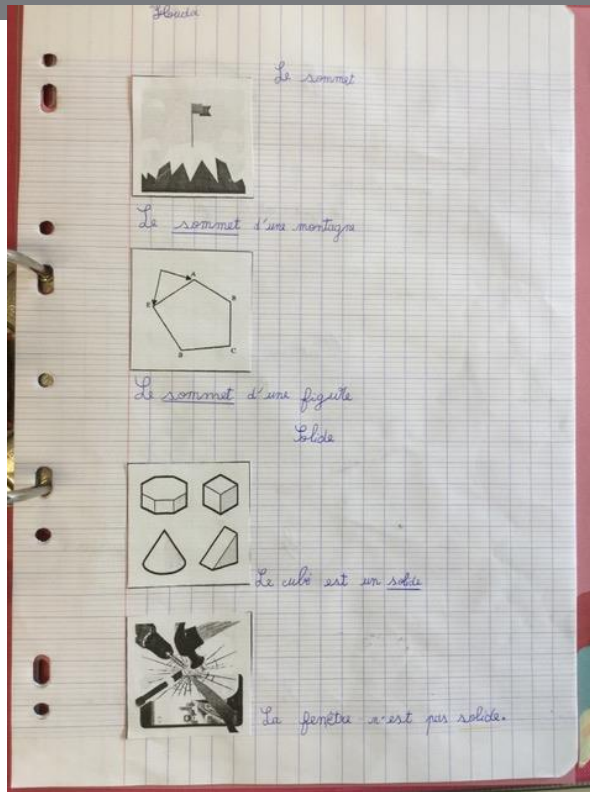 Houdd
Le sommet
Le sommet d'une montagne
A
E
B
D
C
Le sommet d'une figure
Solide
Le cube est un solide
La fenêtre n'est pas solide.